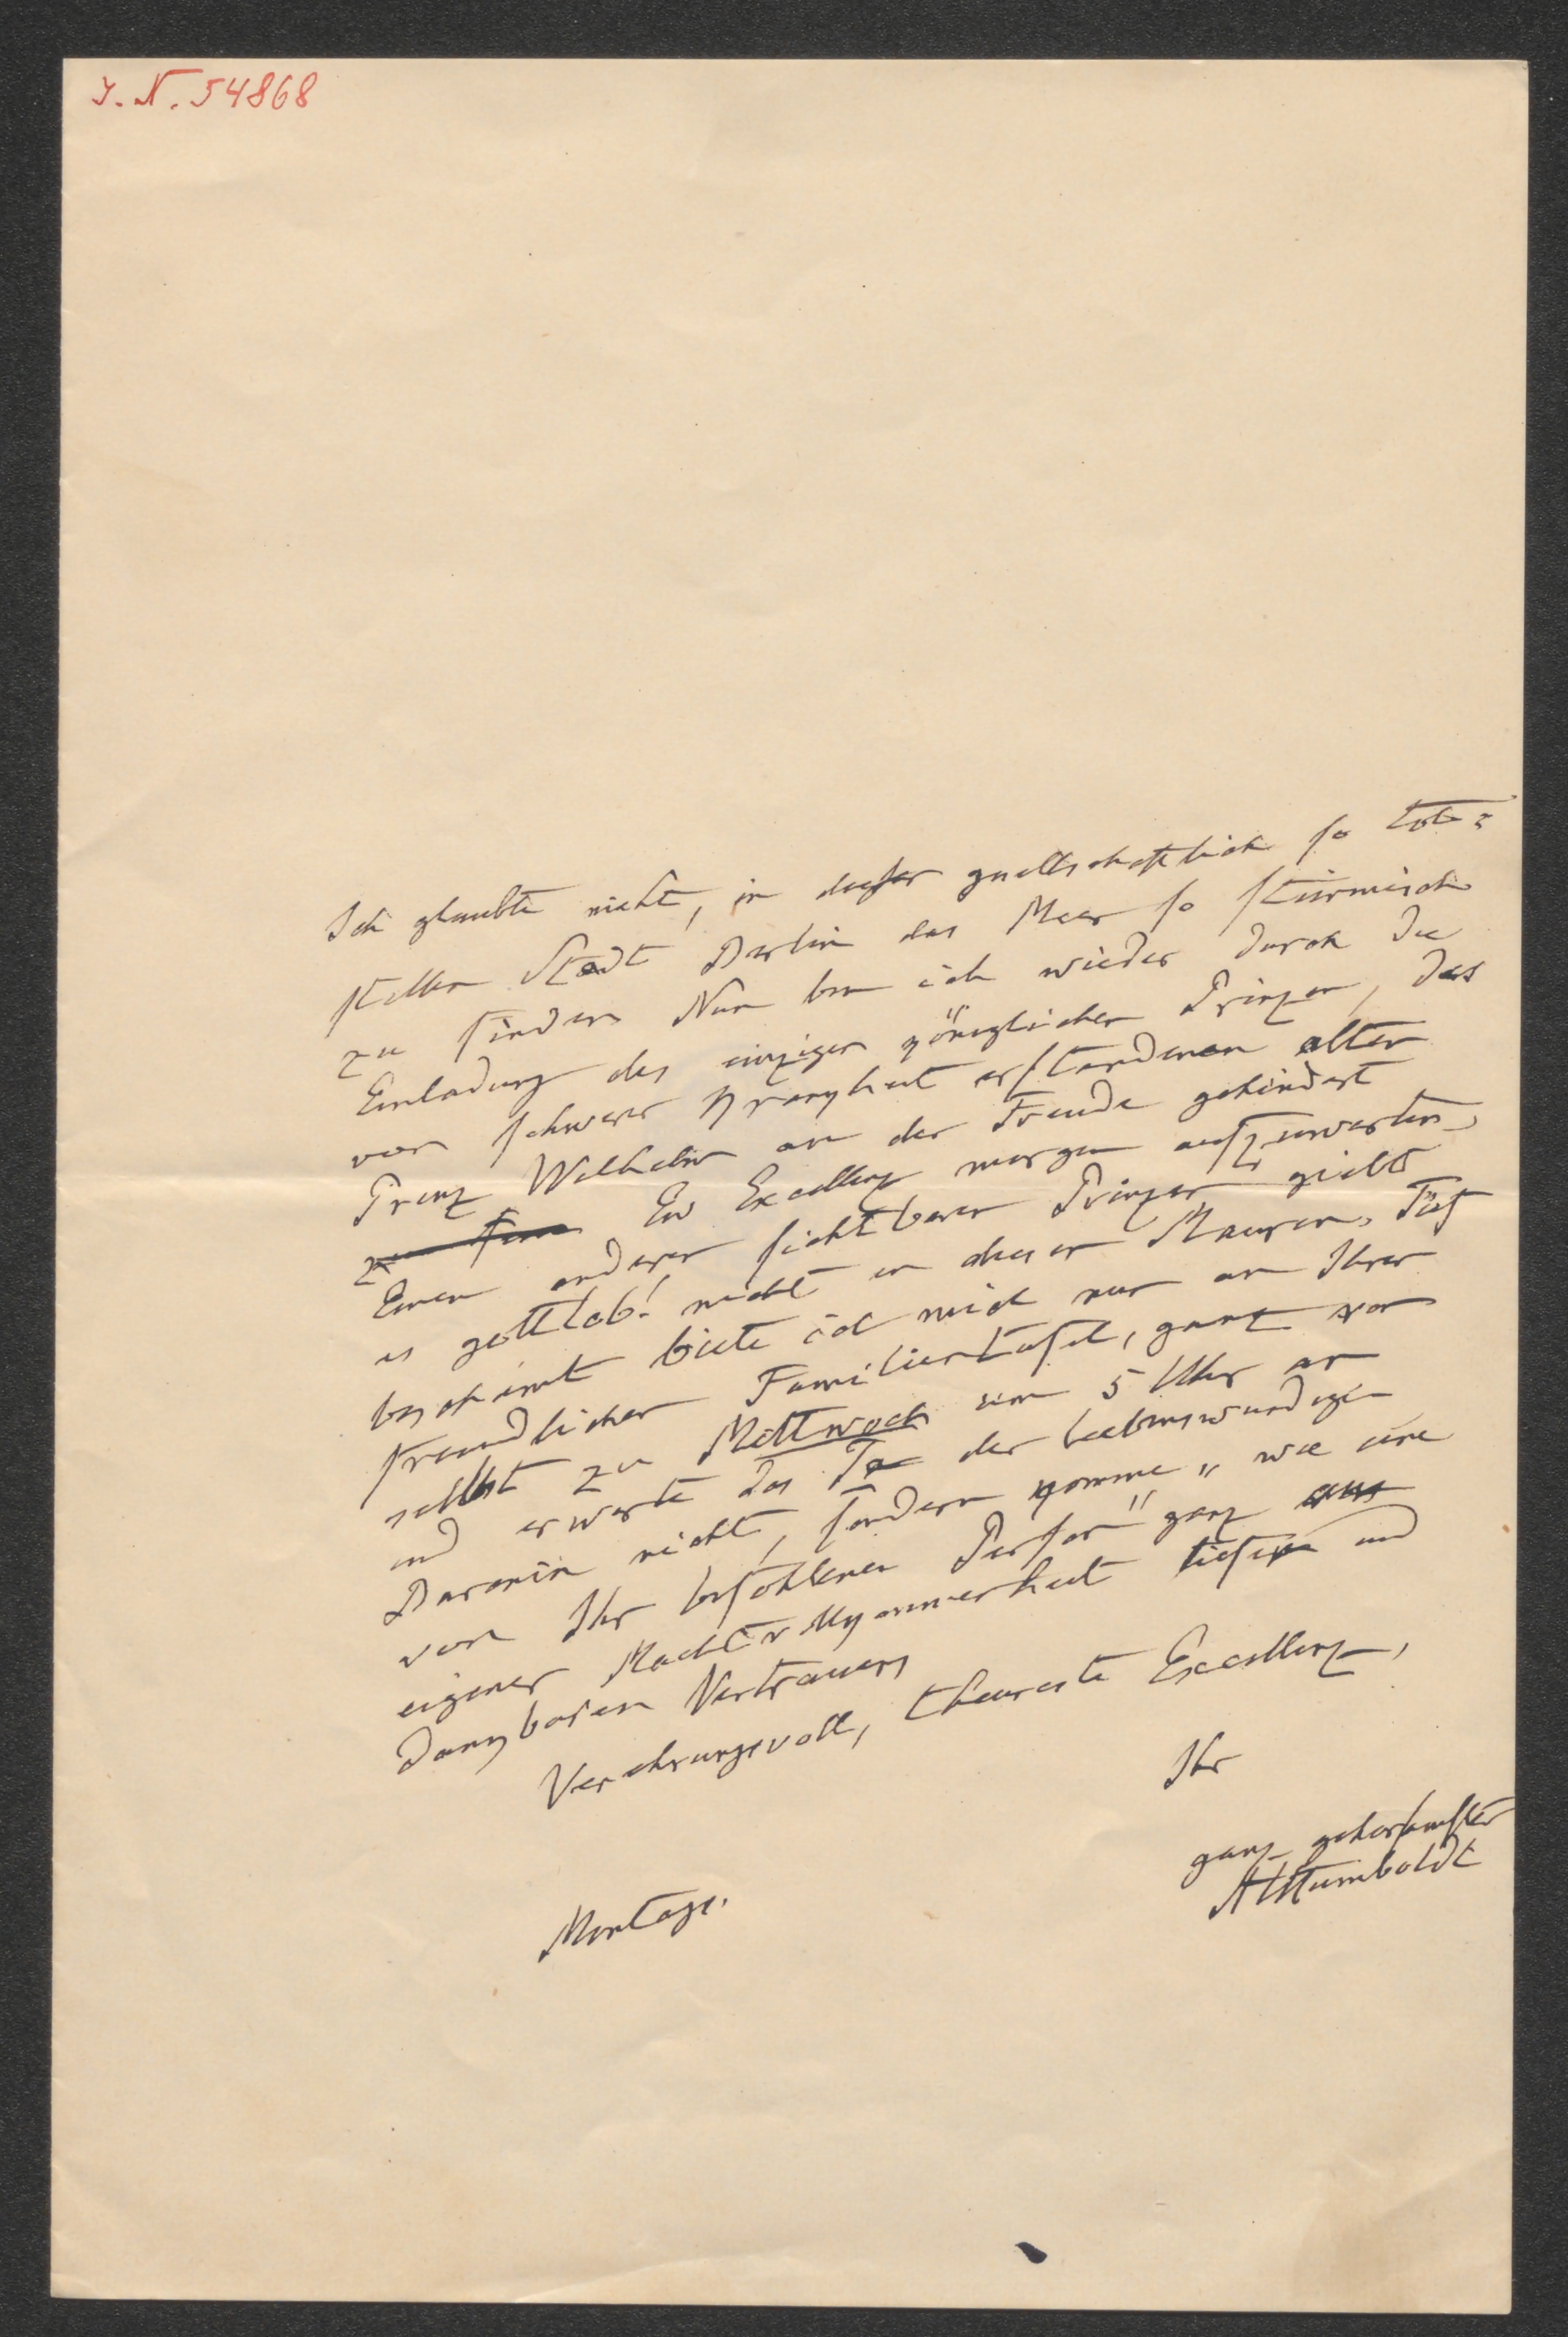 I. N. 54868
Ich glaubte nicht, in dieser gesellschaftlich so todt-
stillen Stadt Berlin das Meer so stürmisch
zu finden Nun bin ich wieder durch die
Einladung des einzigen königlichen Prinzen, des
von schwerer Krankheit erstandenen alten
Prinz Wilhelm an der Freude gehindert
Ew Excellenz morgen aufzuwarten.
Einen anderen sichtbaren Prinzen giebt
es gottlob! nicht in diesen Mauern. Tief
beschämt biete ich mich nur an Ihrer
freundlichen Familientafel, ganz von
selbst zu Mittwoch um 5 Uhr an
und erwarte das der liebenswürdigen
Baronin nicht, sondern komme „wie eine
von Ihr befohlene Person" ganz aus
eigener Machtvollkommenheit tiefen und
dankbaren Vertrauens
Verehrungsvoll, theureste Excellenz,
Ihr
ganz gehorsamster
AvHumboldt
Montags.